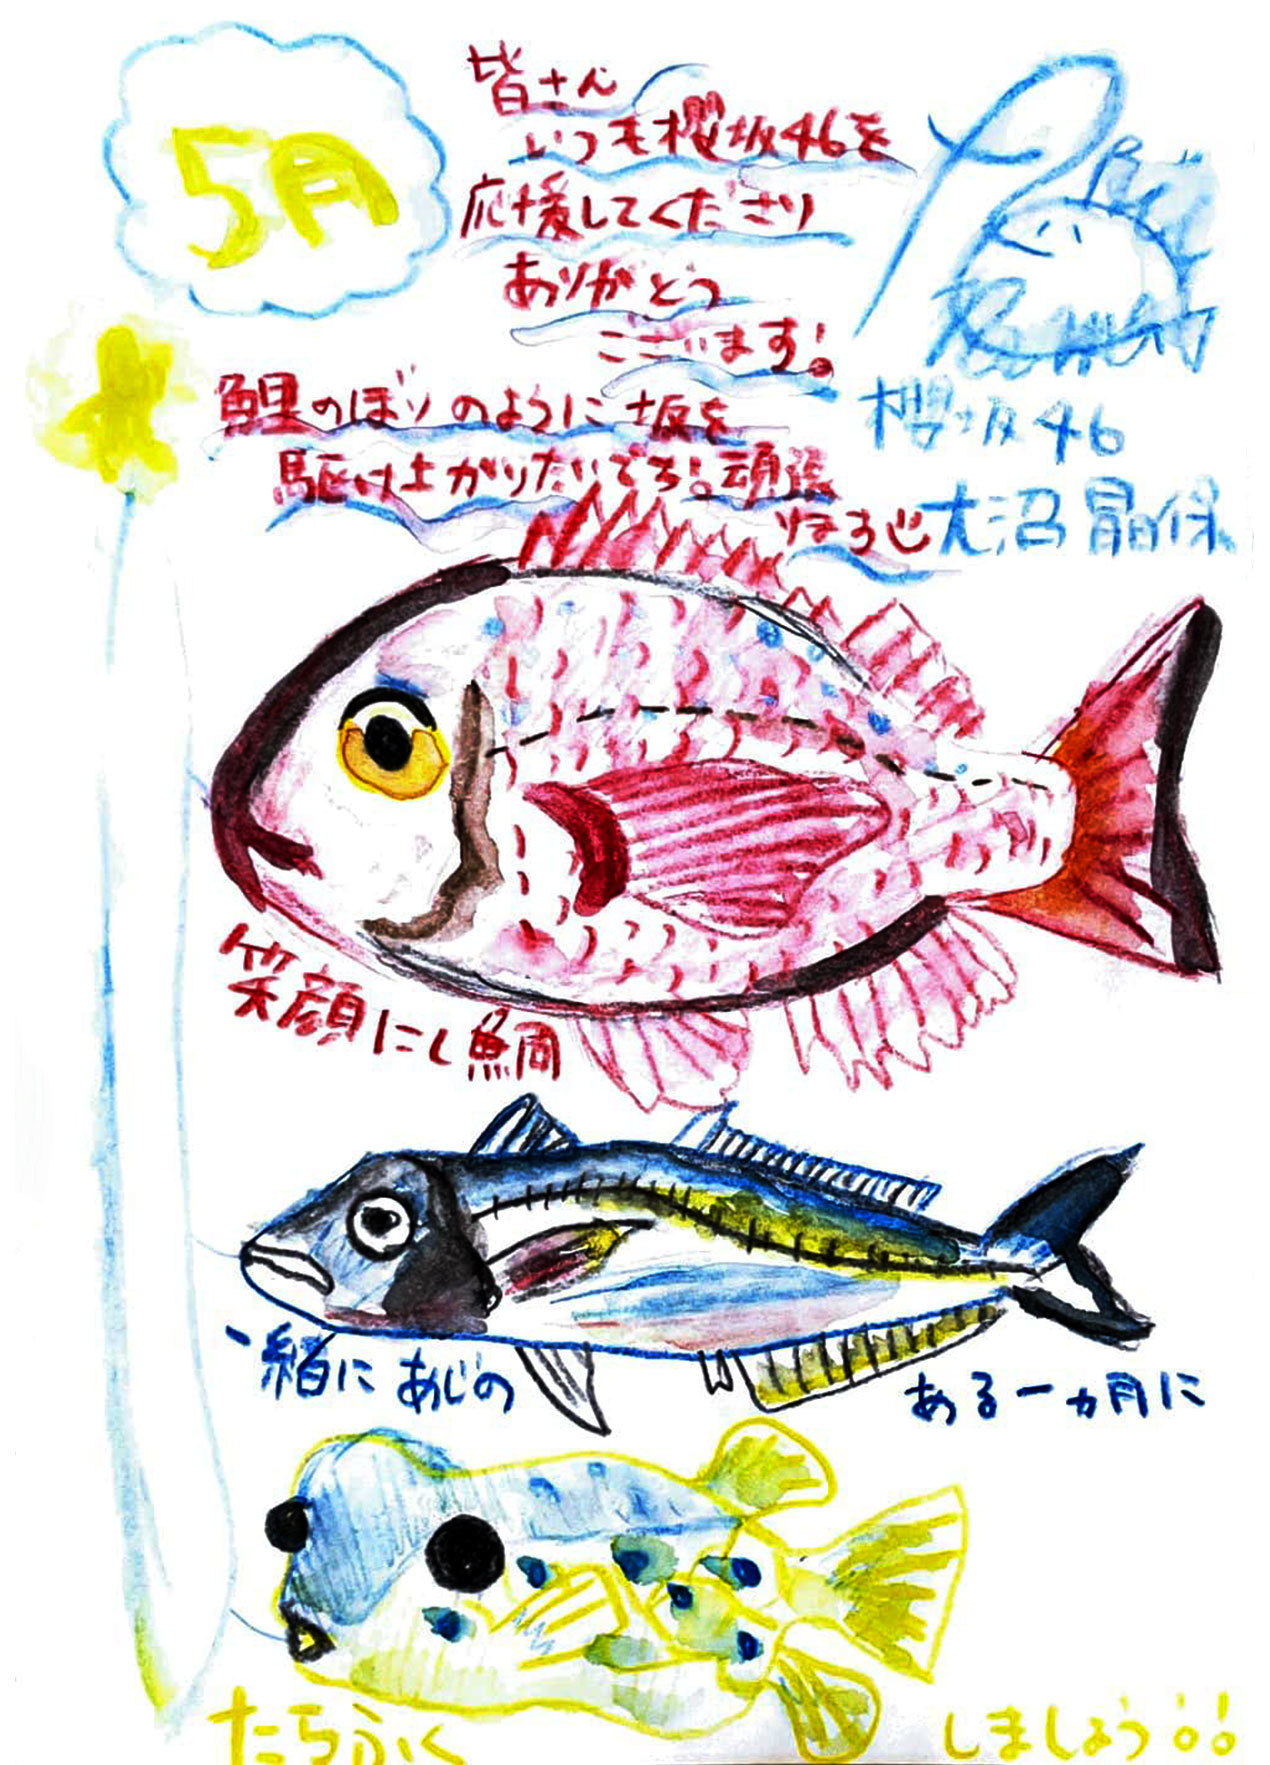 5月
皆さん
いつも櫻坂46を
応援してくださり
ありがとう
ございます!
鯉のぼりのように坂を
駆け上がりたいです!頑張
りまする
櫻坂46
大沼晶保
笑顔にし鯛
一緒にあじの
ある一ヵ月に
たらふく
しましょう!!